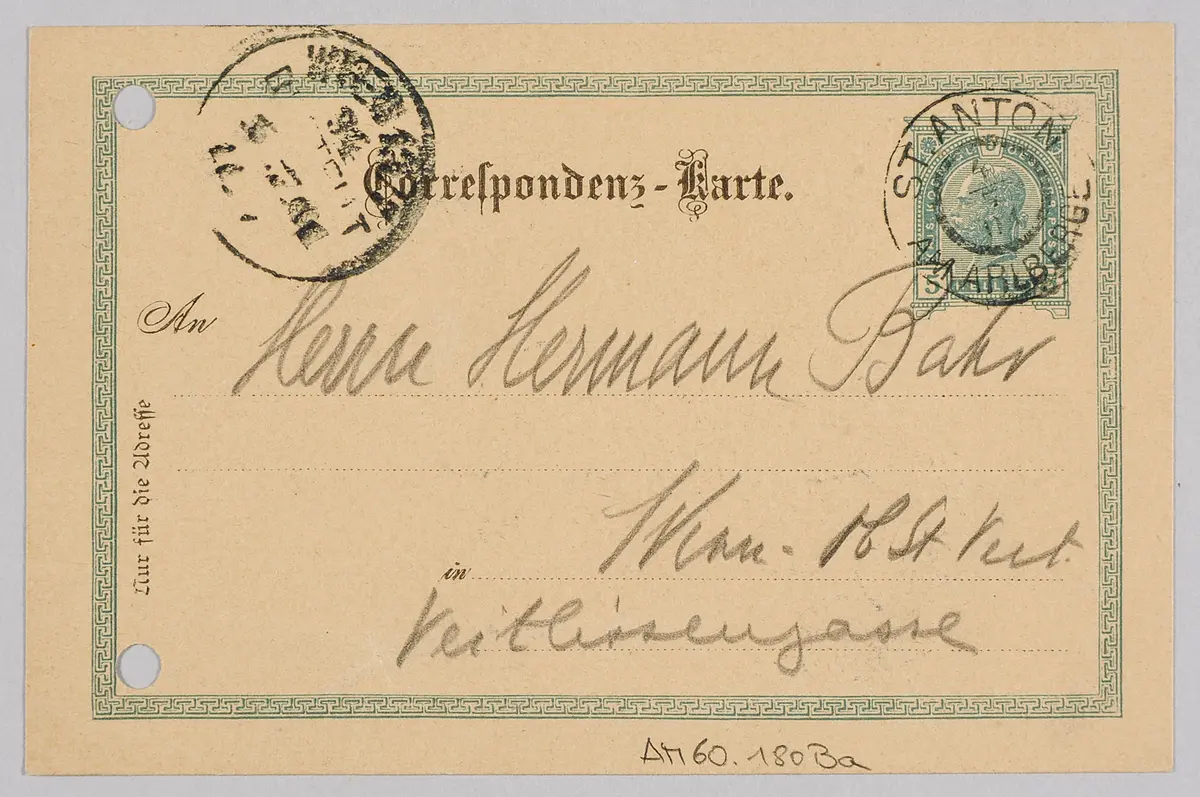 WIEN 13
Correspondenz-Karte.
ST ANTON
AM ARLBERGE
5
An
Herrn Hermann Bahr
Nur für die Adresse
in Wien - Ob St Veit.
Veitlissengasse
AM 60.180Ba